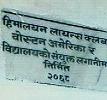 हिमालयन लायन्स क्लब
वोस्टन अमेरिका र
विद्यालयको संयुक्त लगानीमा
निर्मित
२०६८